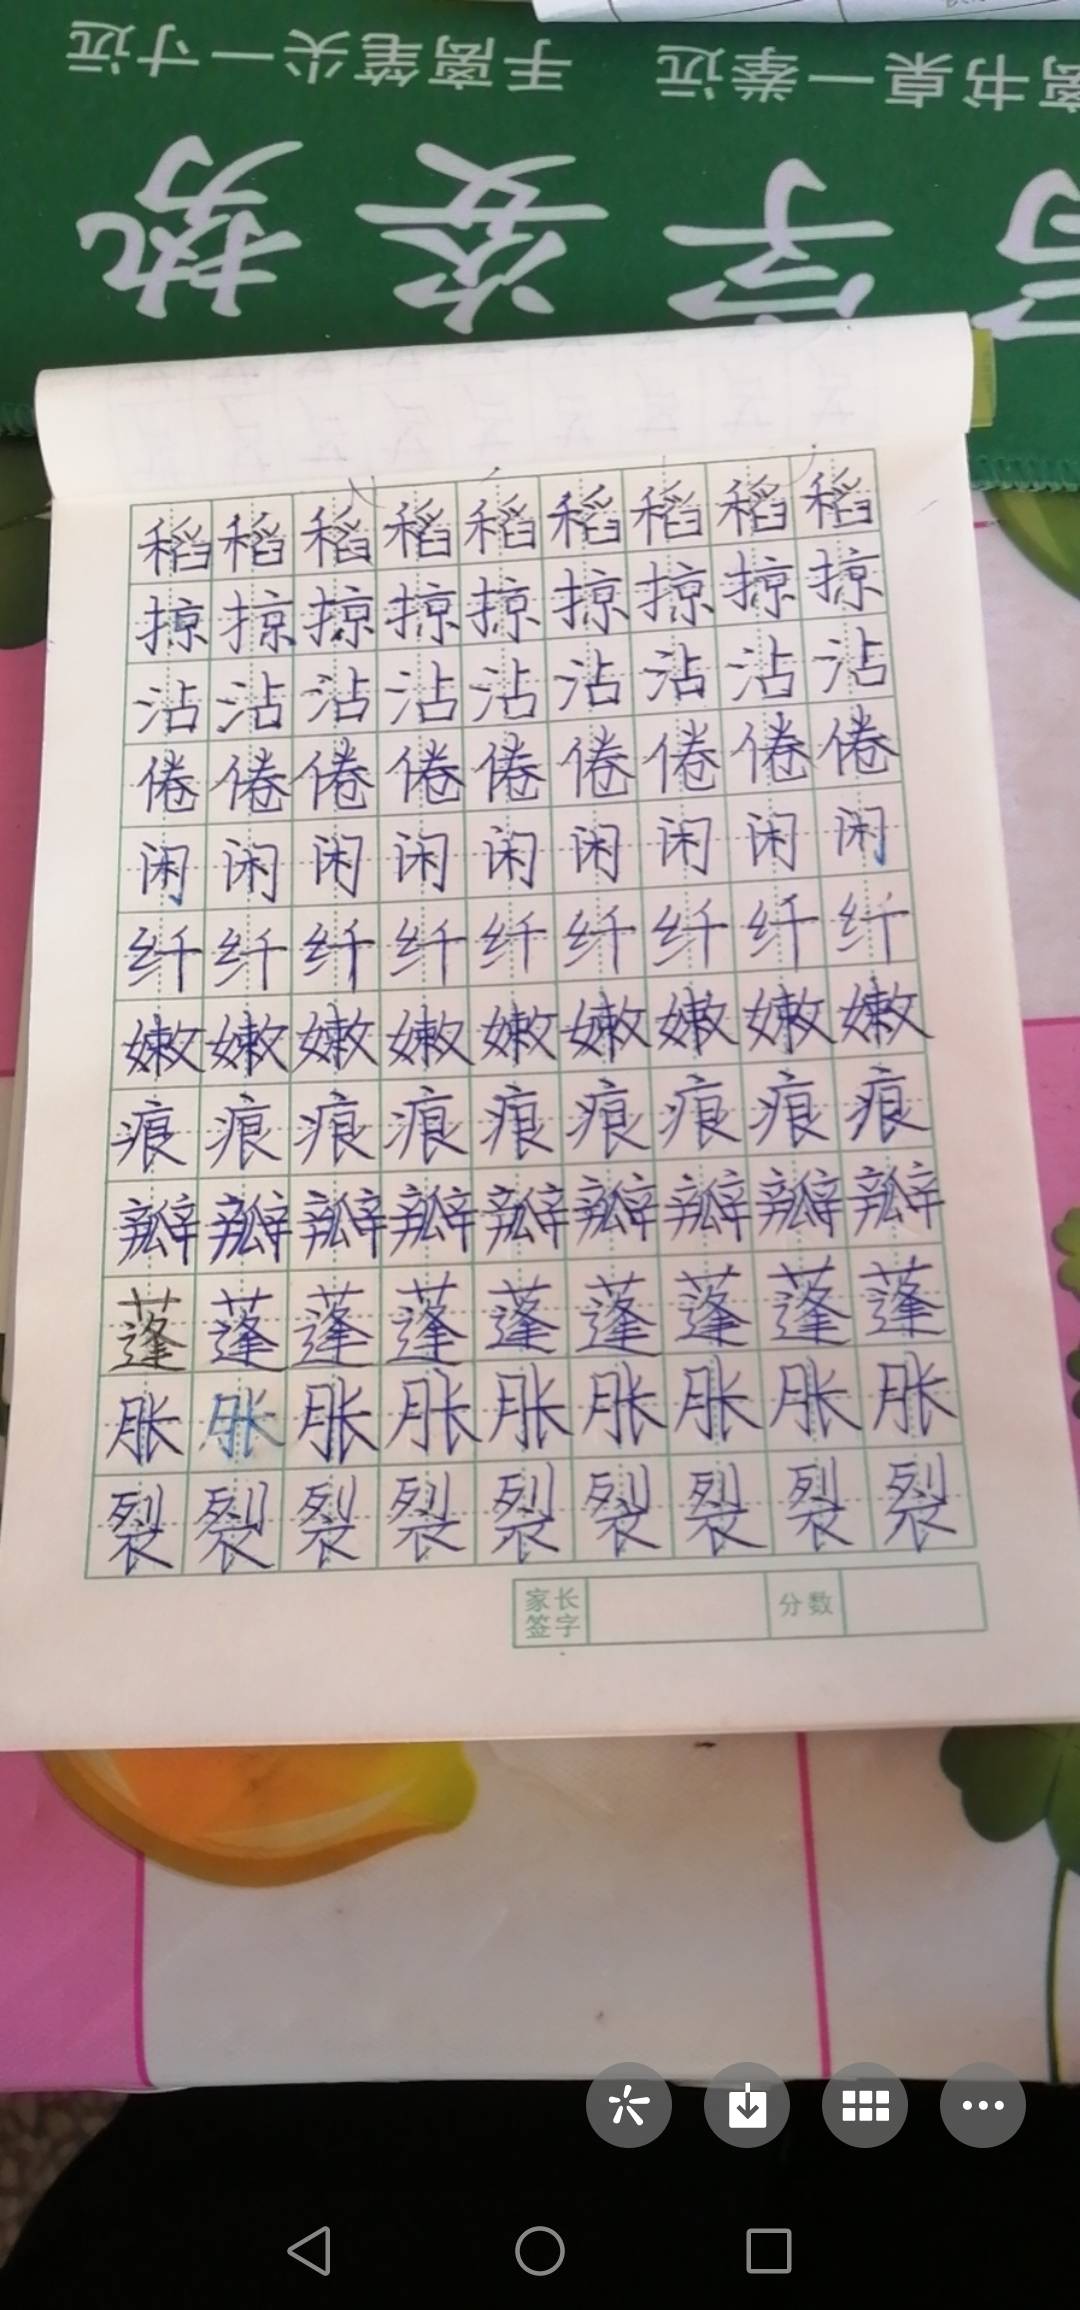 手离笔尖一寸远 离书桌一拳远
写字姿势
稻稻稻稻稻稻稻稻稻
掠掠掠掠掠掠掠掠掠
沾沾沾沾沾沾沾沾沾
倦倦倦倦倦倦倦倦倦
闲闲闲闲闲闲闲闲闲
纤纤纤纤纤纤纤纤纤
嫩嫩嫩嫩嫩嫩嫩嫩嫩
痕痕痕痕痕痕痕痕痕
瓣瓣瓣瓣瓣瓣瓣瓣瓣
蓬蓬蓬蓬蓬蓬蓬蓬蓬
胀胀胀胀胀胀胀胀胀
裂裂裂裂裂裂裂裂裂
家长签字 分数